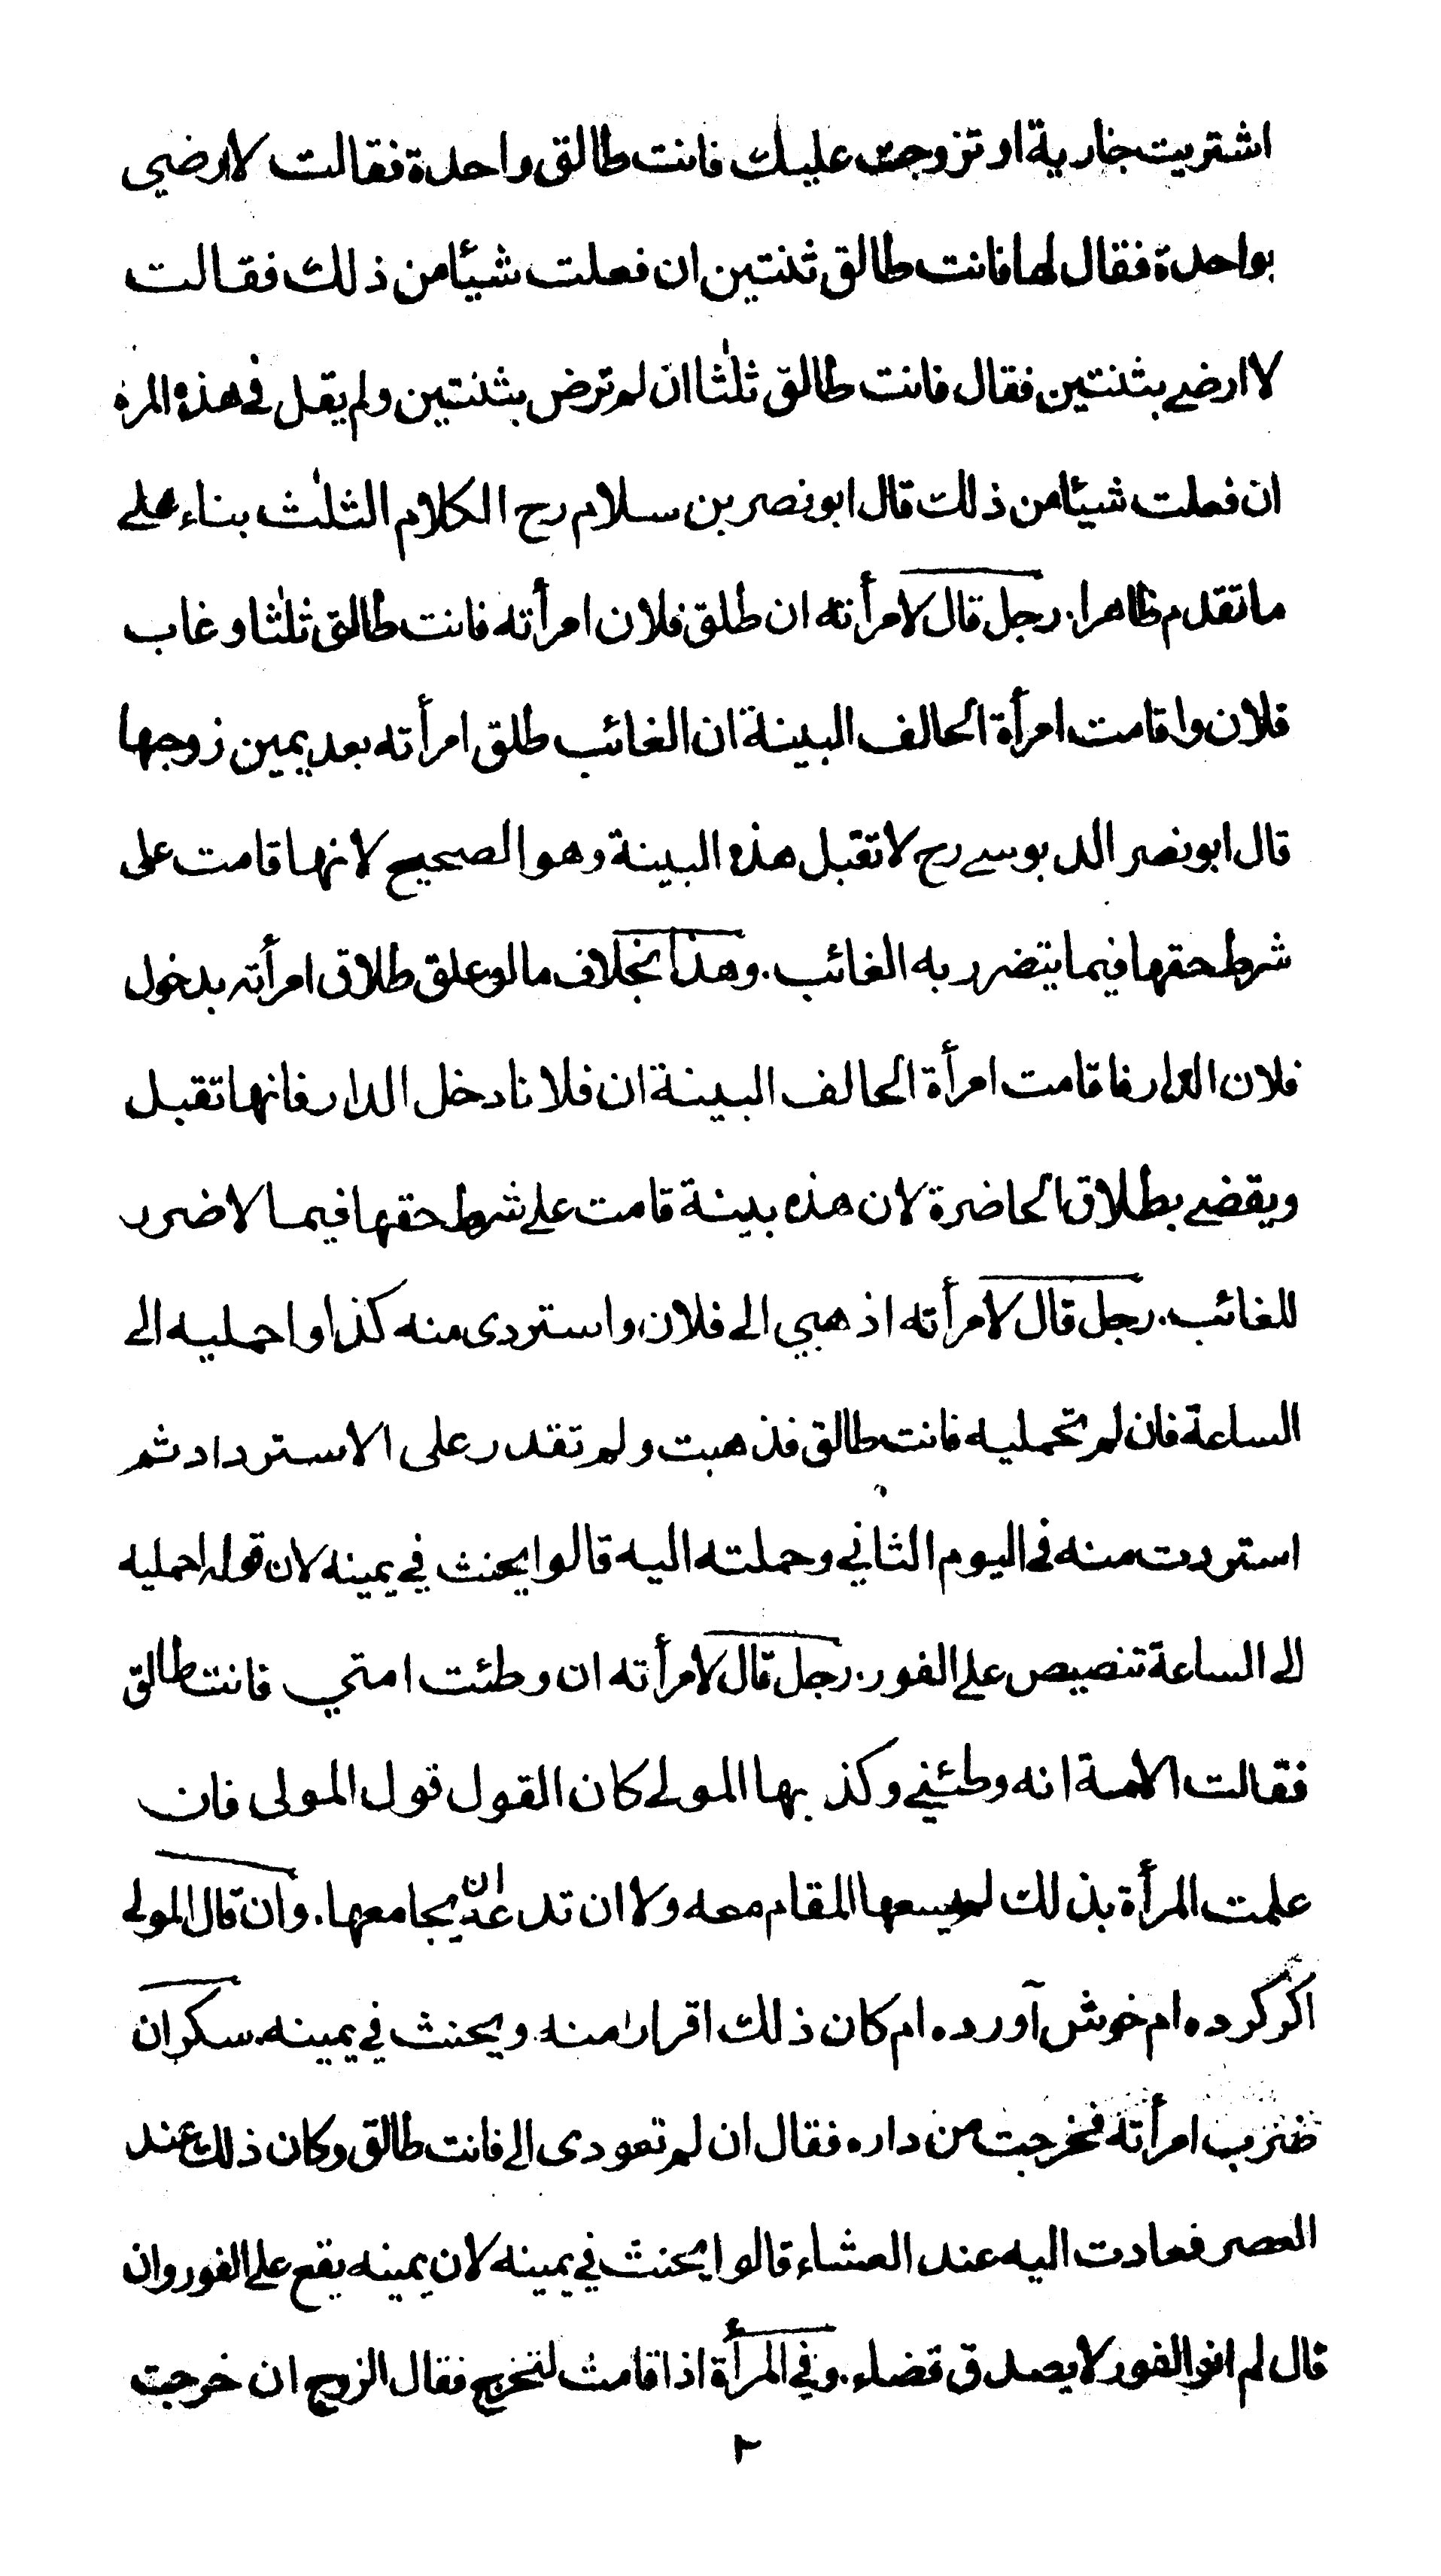 اشتريت جارية او تزوجت عليك فانت طالق واحدة فقالت لا ارضي
بواحدة فقال لها فانت طالق ثنتين ان فعلت شيئا من ذلك فقالت
لا ارضي بثنتين فقال فانت طالق ثلٰثا ان لم ترض بثنتين ولم يقل في هذه المرة
ان فعلت شيئا من ذلك قال ابو نصر بن سلام رح الكلام الثلٰث بناء علے
ما تقدم ظاهرا. رجل قال لامرأته ان طلق فلان امرأته فانت طالق ثلثا وغاب
فلان واقامت امرأة الحالف البينة ان الغائب طلق امرأته بعد يمين زوجها
قال ابو نصر الدبوسے رح لا تقبل هذه البينة وهو الصحيح لانها قامت على
شرط حقها فيما يتضرر به الغائب. وهذا بخلاف ما لو علق طلاق امرأته بدخول
فلان الدار فاقامت امرأة الحالف البينة ان فلانا دخل الدار فانها تقبل
ويقضے بطلاق الحاضرة لان هذه بينة قامت علے شرط حقها فيما لا ضرر
للغائب. رجل قال لامرأته اذهبي الے فلان واستردى منه كذا واحمليه الے
الساعة فان لم تحمليه فانت طالق فذهبت ولم تقدر على الاسترداد ثم
استردت منه في اليوم الثاني وحملته اليه قالوا يحنث في يمينه لان قوله احمليه
الے الساعة تنصيص علے الفور. رجل قال لامرأته ان وطئت امتي فانت طالق
فقالت الامة انه وطئني وكذبها المولے كان القول قول المولى فان
علمت المرأة بذلك لم يسعها المقام معه ولا ان تدعه ان يجامعها. وان قال المولے
اكر كرده ام خوش آورده ام كان ذلك اقرارا منه ويحنث في يمينه. سكران
ضرب امرأته فخرجت من داره فقال ان لم تعودى الے فانت طالق وكان ذلك عند
العصر فعادت اليه عند العشاء قالوا يحنث في يمينه لان يمينه يقع علے الفور وان
قال لم انو الفور لا يصدق قضاء. وفي المرأة اذا قامت لتخرج فقال الزوج ان خرجت
٢